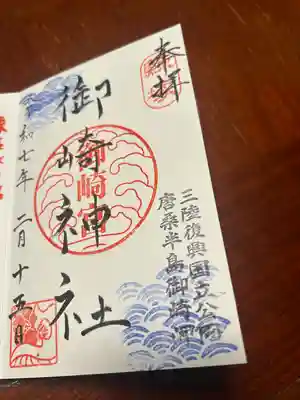 奉拝
三陸復興国立公園
唐桑半島御崎岬
御崎神社
御崎宮
令和七年 二月 十五日